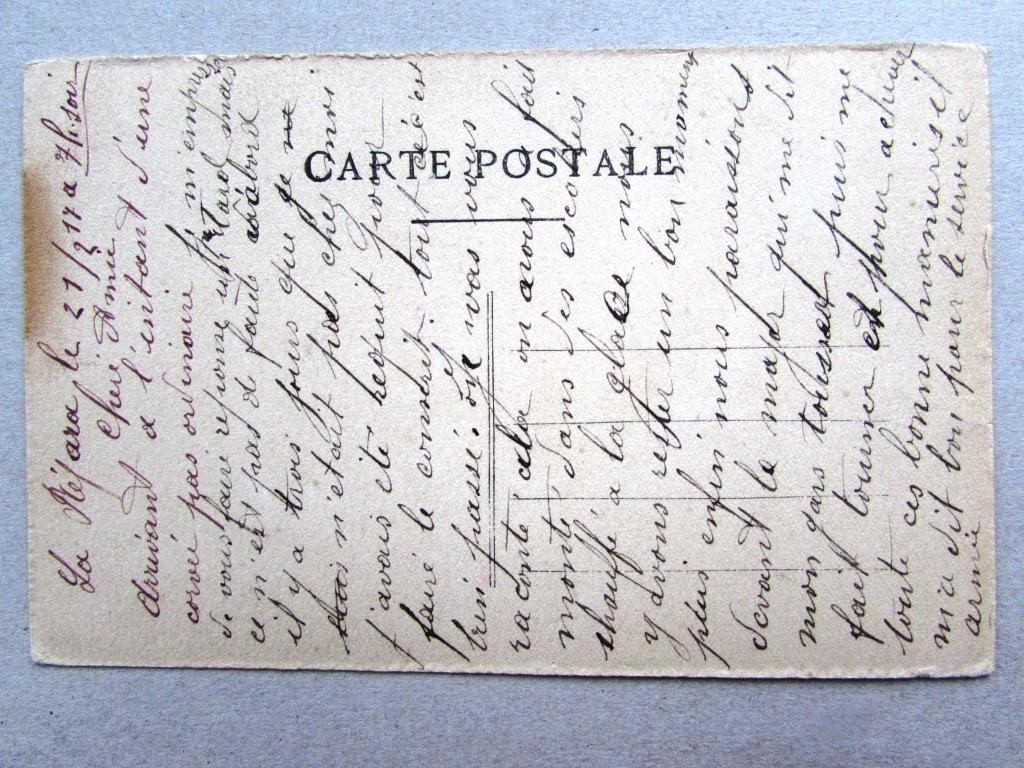 CARTE POSTALE
La Réjara le 21/2 17 a 7h. soir
Cheré Amie
arrivant a l'instant d'une
corvé pas ordinaire je m'empresse
de vous faire reponse un tard mais
ce n'est pas de faute d'abord
il y a trois jours que je
n'etait pas chez moi
j'avais eté requit pour
faire le conscrit tout céé est
bien passé. je vas vous
raconté cela on avons fait
monté dans des escouris
chauffé a la glace nous
y avons rester un bon moment
puis enfin nous paraissions
devant le major qui me dit
mon gars toussez puis me
fait tourner et pour achever
toute ces bonne manierise il
me dit bon pour le service
armée